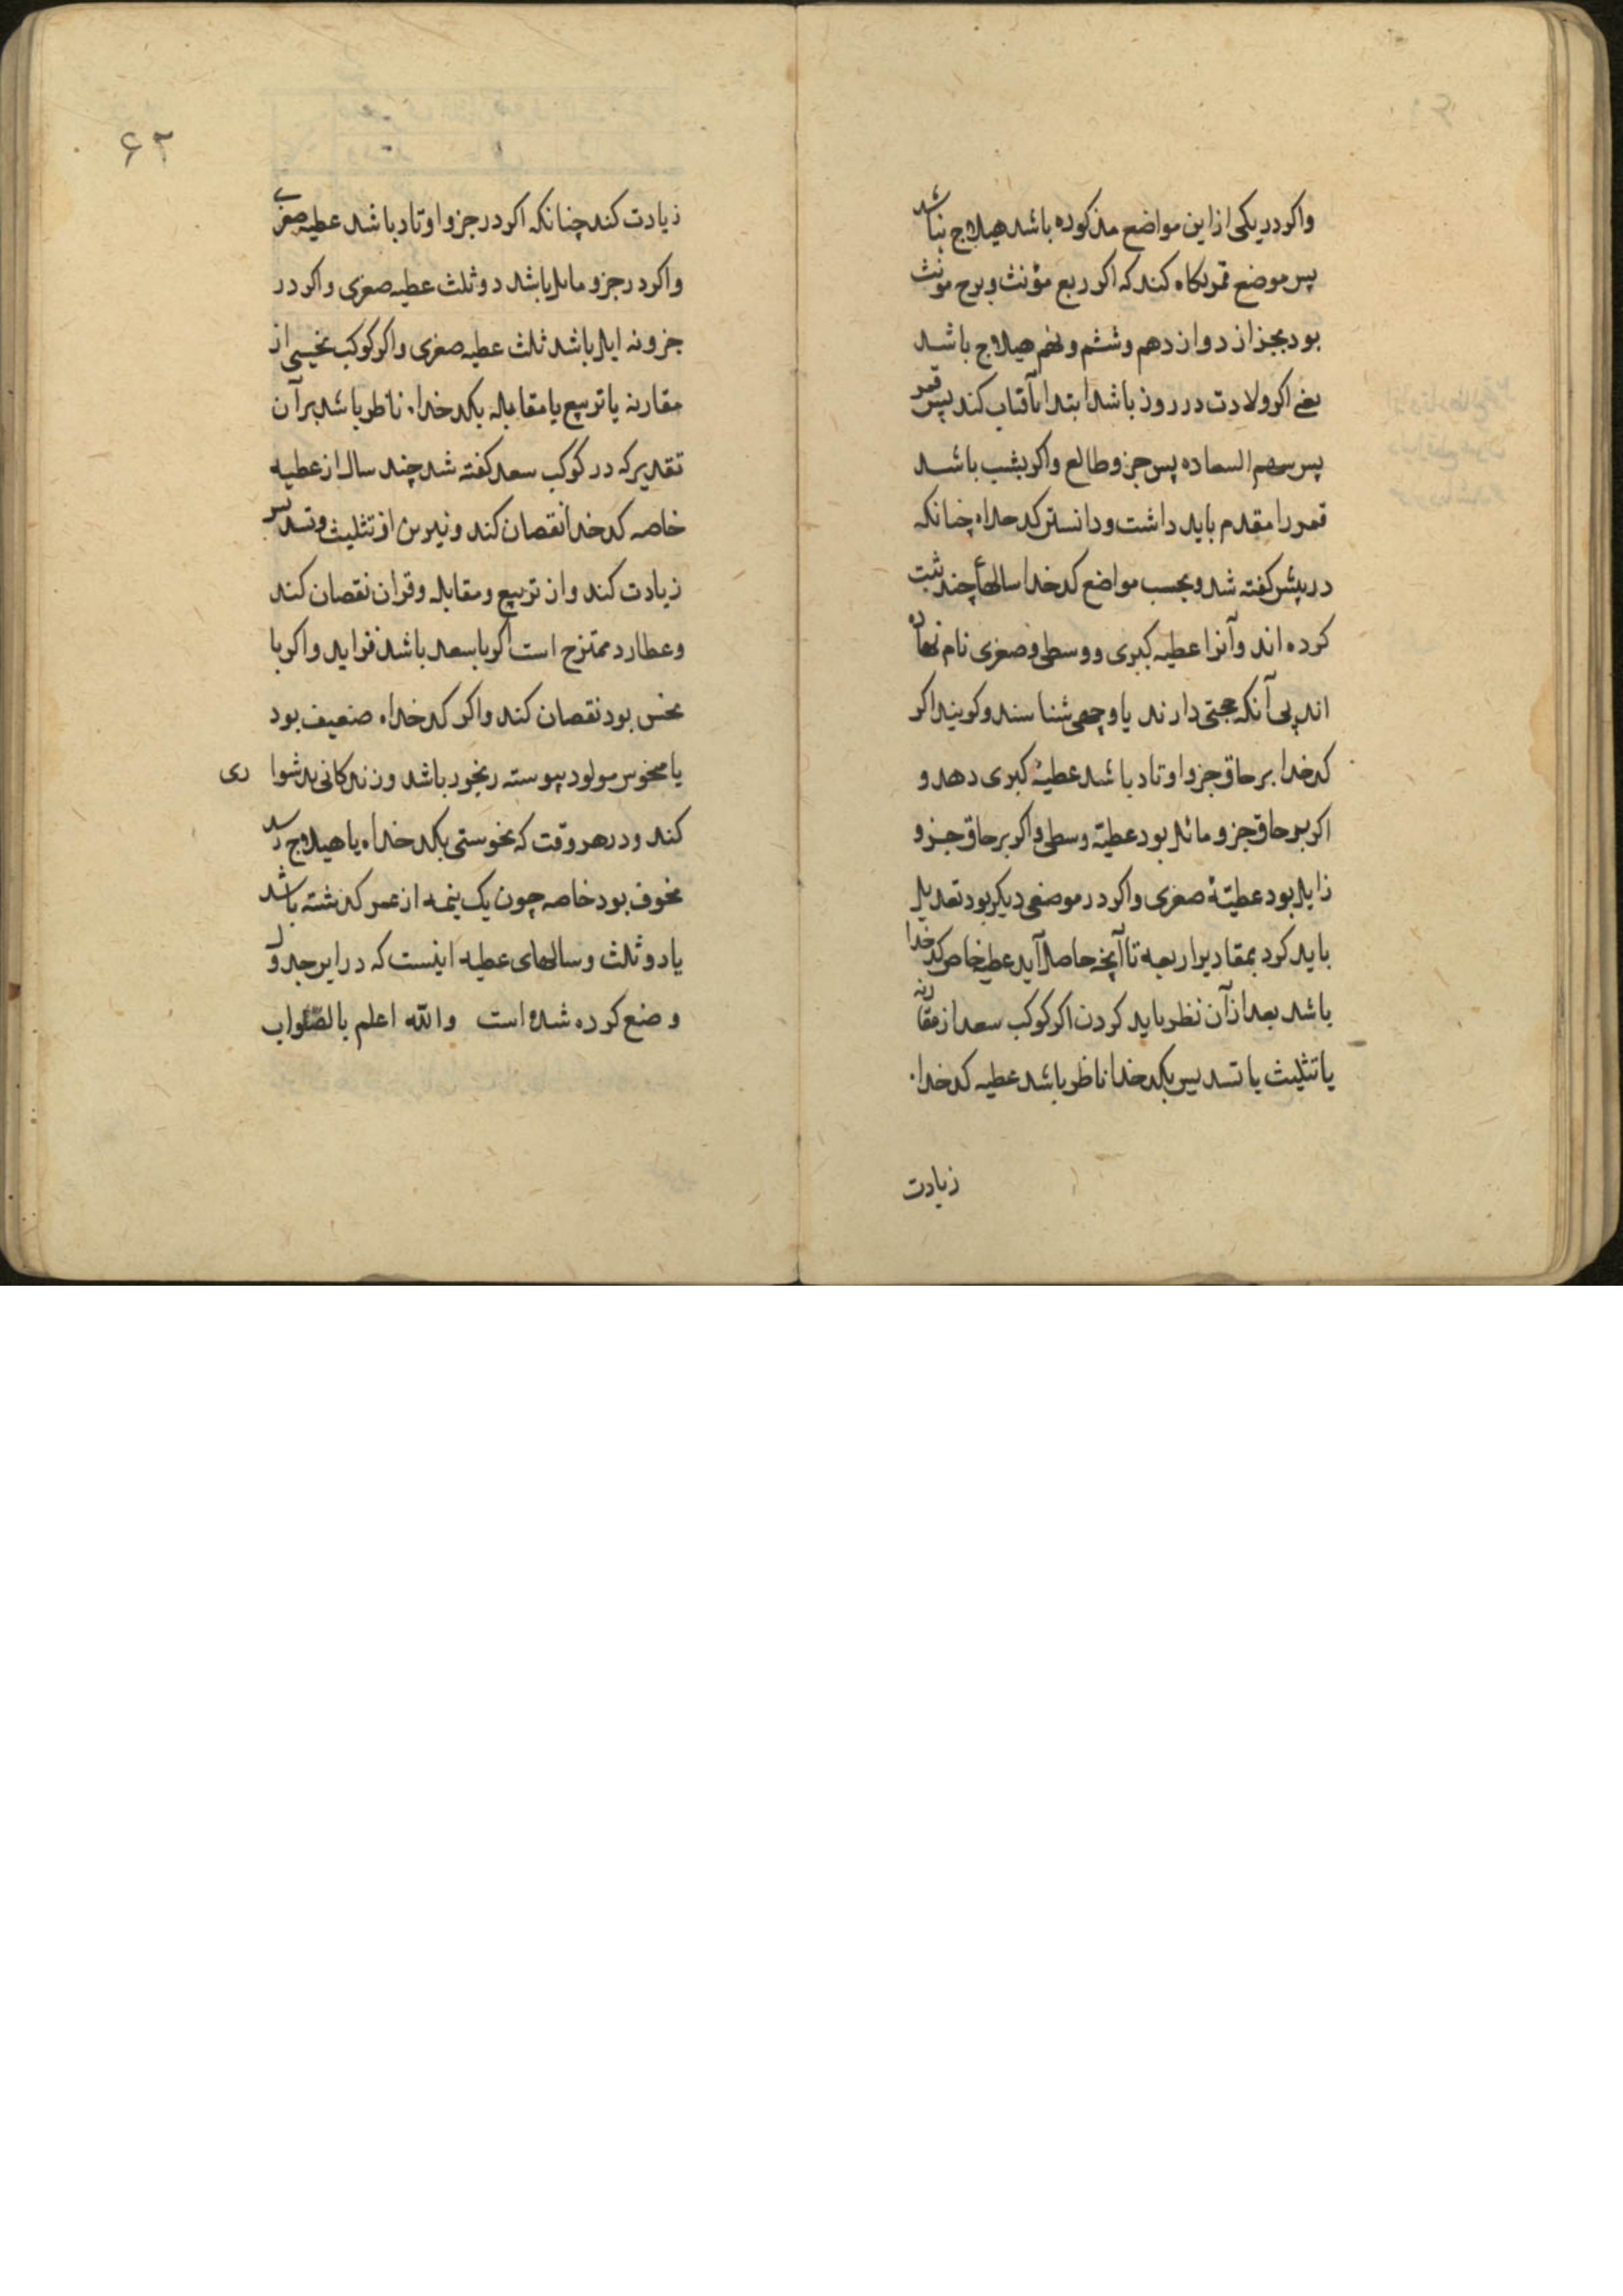 واکر در یکی از این مواضع مذکوره باشد هیلاج نباشد
پس موضع قمر نکاه کند که اکر ربع مؤنث و برج مونث
بود بجز از دوازدهم و ششم و نهم هیلاج باشد
یعنی اکر ولادت در روز باشد ابتدا بآفتاب کند پس قمر
پس سهم السعاده پس جزو طالع و اکر بشب باشد
قمر را مقدم باید داشت و دانستن کدخداه چنانکه
در پیش کفته شد و بحسب مواضع کدخدا سالهاء چند ثبت
کرده اند و آنرا عطیه کبری و وسطی و صغری نام نهاده
اند بی آنکه حجتی دارند یا وجهی شناسند و کویند اکر
کدخدا بر حاق جزو اوتاد باشد عطیهٔ کبری دهد و
اکر بر حاق جزو مائل بود عطیّه وسطی و اکر بر حاق جزو
زایل بود عطیّهٔ صغری و اکر در موضعی دیکر بود تعدیل
باید کرد بمقادیر اربعه تا آنچه حاصل آید عطیه خاص کدخدا
باشد بعد از آن نظر باید کردن اکر کوکب سعد از مقارنه
یا تثلیث یا تسدیس بکدخدا ناظر باشد عطیه کدخدا.
زیادت
۶۲
زیادت کند چنانکه اکر در جزو اوتاد باشد عطیه صغری
و اکر در جزو مایل باشد دو ثلث عطیه صغری و اکر در
جزو زایل باشد ثلث عطیه صغری و اکر کوکب نحسی از
مقارنه یا تربیع یا مقابله بکدخداه ناظر باشد بر آن
تقدیر که در کوکب سعد کفته شد چند سال از عطیه
خاصه کدخدا نقصان کند و نیرین از تثلیث و تسدیس
زیادت کند و از تربیع و مقابله و قران نقصان کند
و عطارد ممتزج است اکر با سعد باشد فزاید و اکر با
نحس بود نقصان کند و اکر کدخداه ضعیف بود
یا منحوس مولود پیوسته رنجور باشد و زندکانی بدشواری
کند و در هر وقت که نحوستی بکدخداه یا هیلاج رسد
مخوف بود خاصه چون یک نیمه از عمر کذشته باشد
یا دو ثلث و سالهای عطیه اینست که در این جدول
وضع کرده شده است والله اعلم بالصواب